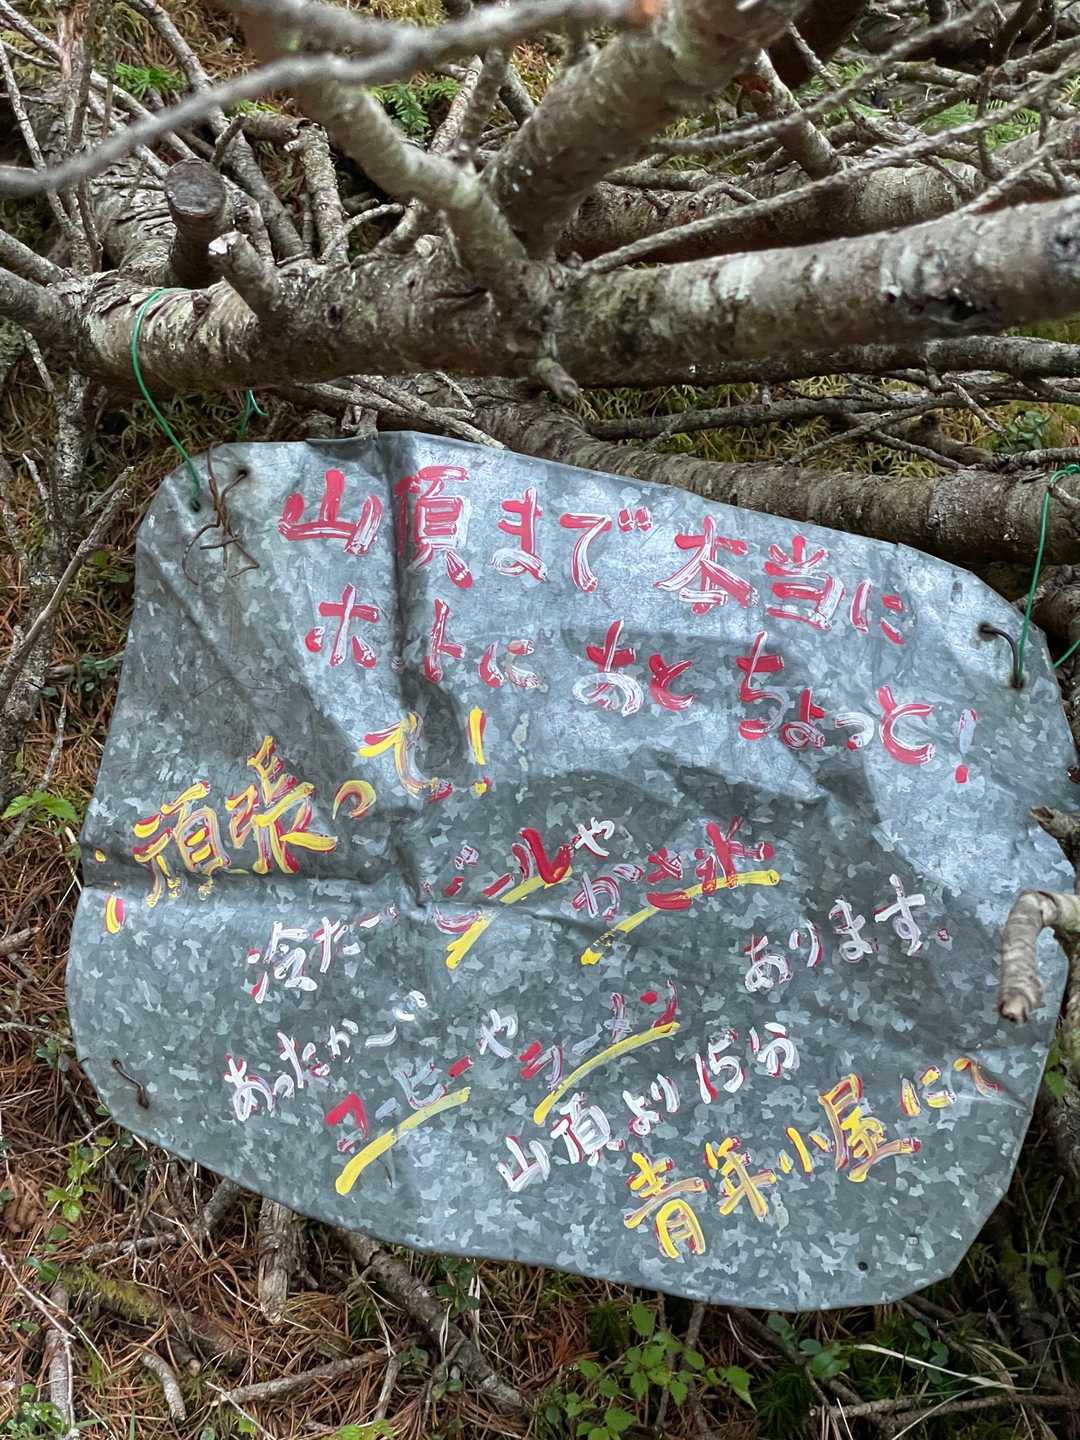 山頂まで本当に
ホントにあとちょっと!
頑張って!!
冷たいビールやかき氷
あります。
あったか〜いコーヒーやラーメン
山頂より15分
青年小屋にて